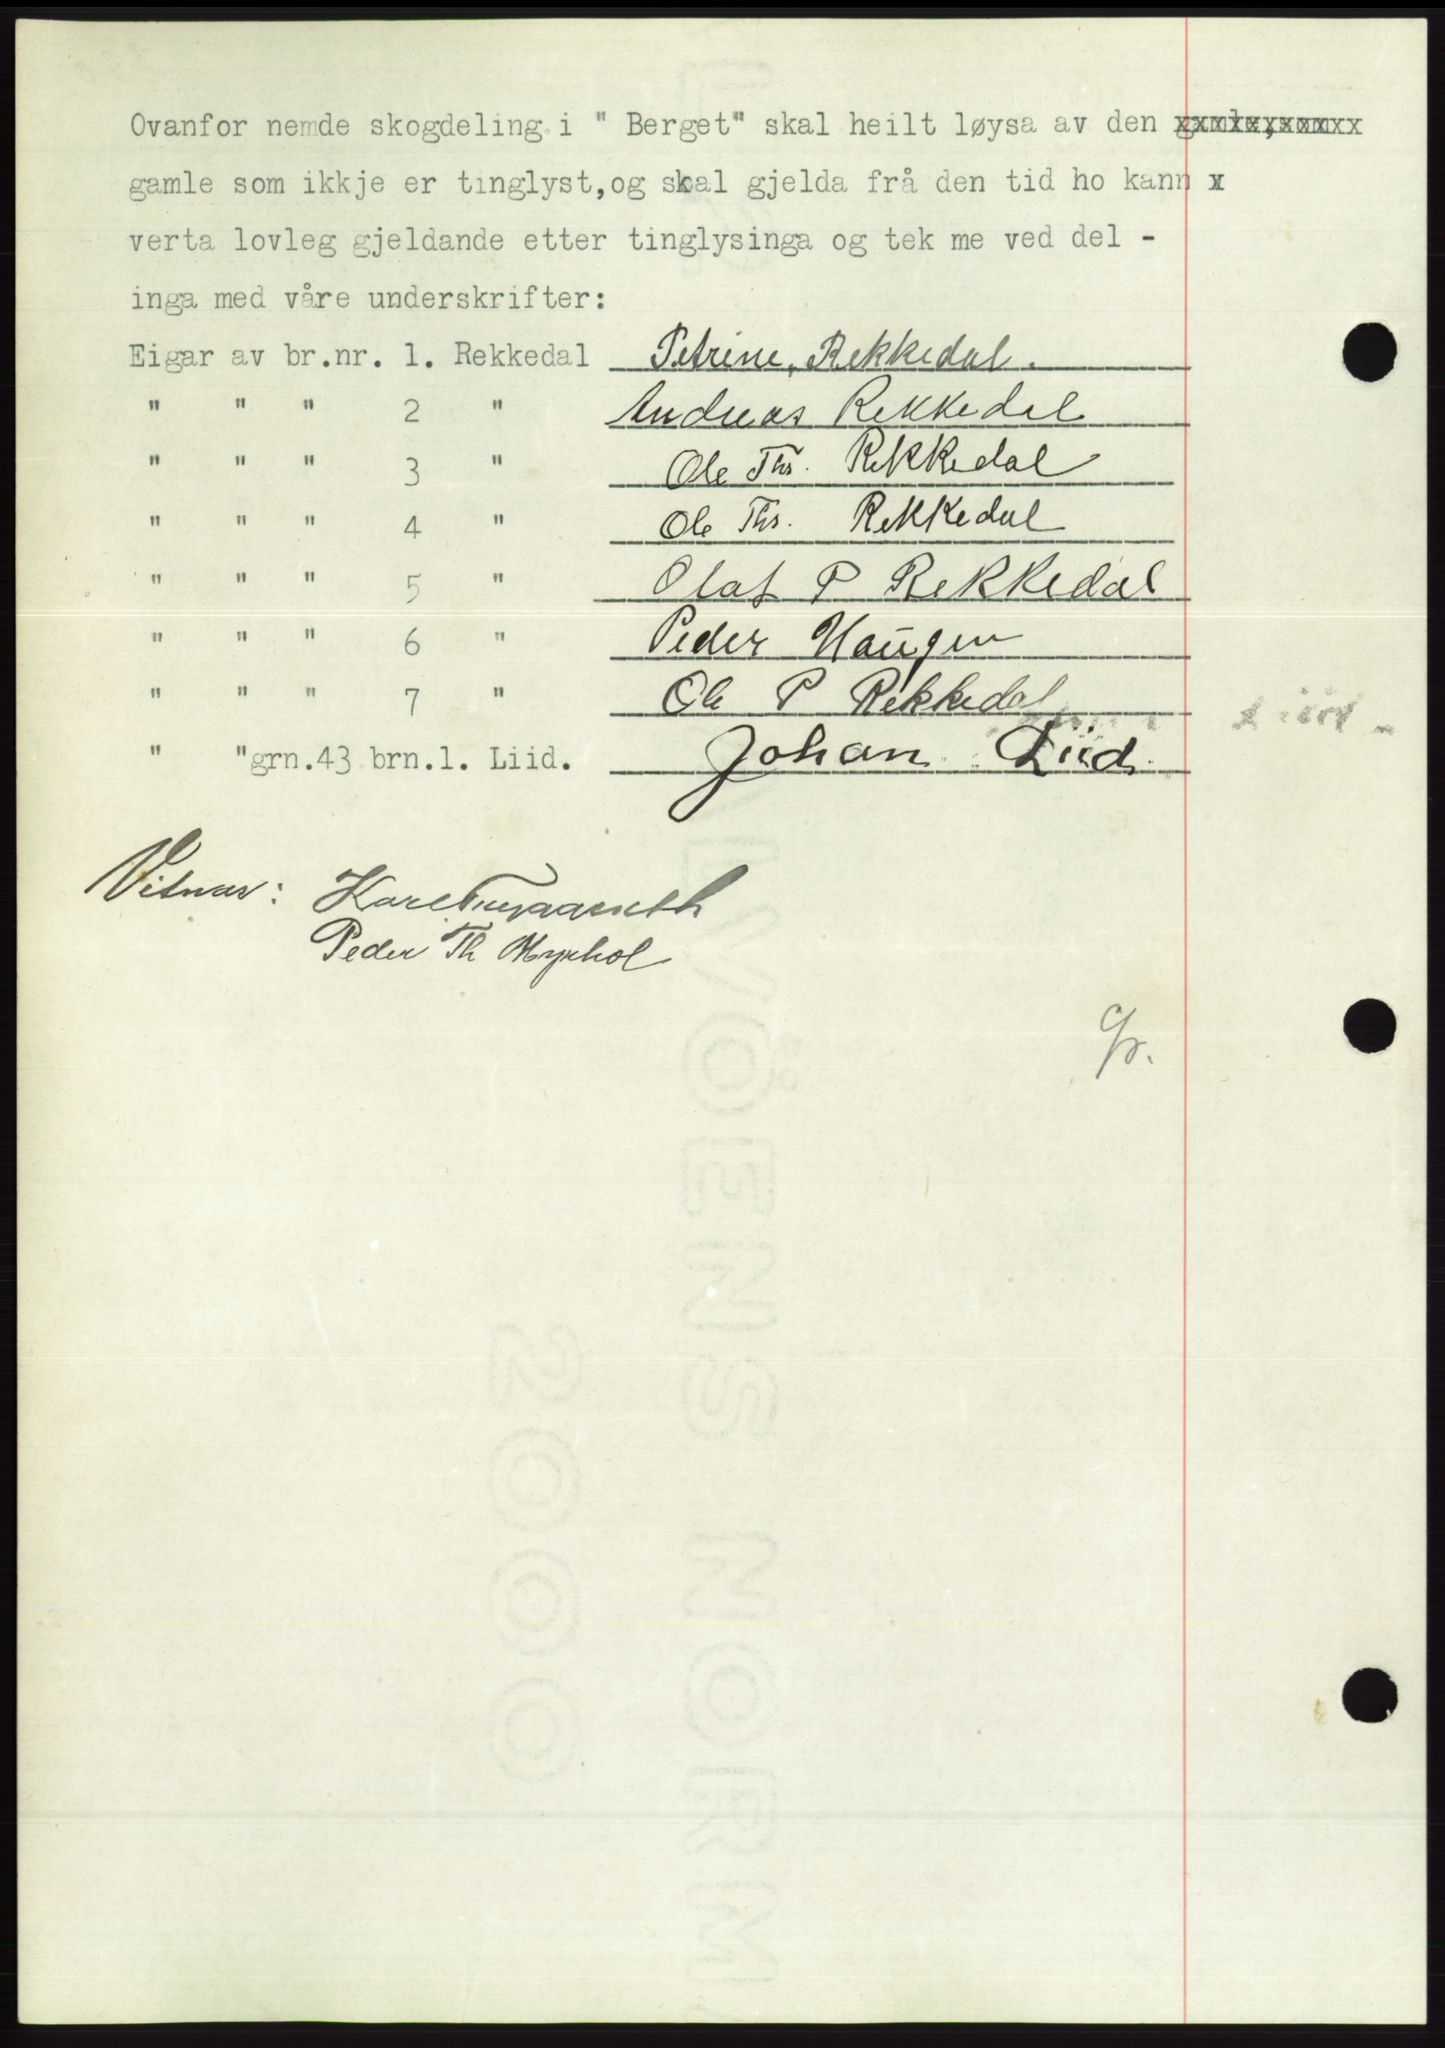 Ovanfor nemde skogdeling i " Berget" skal heilt løysa av den
gamle som ikkje er tinglyst,og skal gjelda frå den tid ho kann x
verta lovleg gjeldande etter tinglysinga og tek me ved del -
inga med våre underskrifter:
Eigar av br.nr. 1. Rekkedal Petrine Rekkedal.
" " " 2 " Andreas Rekkedal
" " " 3 " Ole Ths. Rekkedal
" " " 4 " Ole Ths. Rekkedal
" " " 5 " Olaf P Rekkedal
" " " 6 " Peder Haugen
" " " 7 " Ole P Rekkedal
" "grn.43 brn.1. Liid. Johan Liid.
Vitnar:
Peder Th Myrhol
ALVØENS NORM
2000